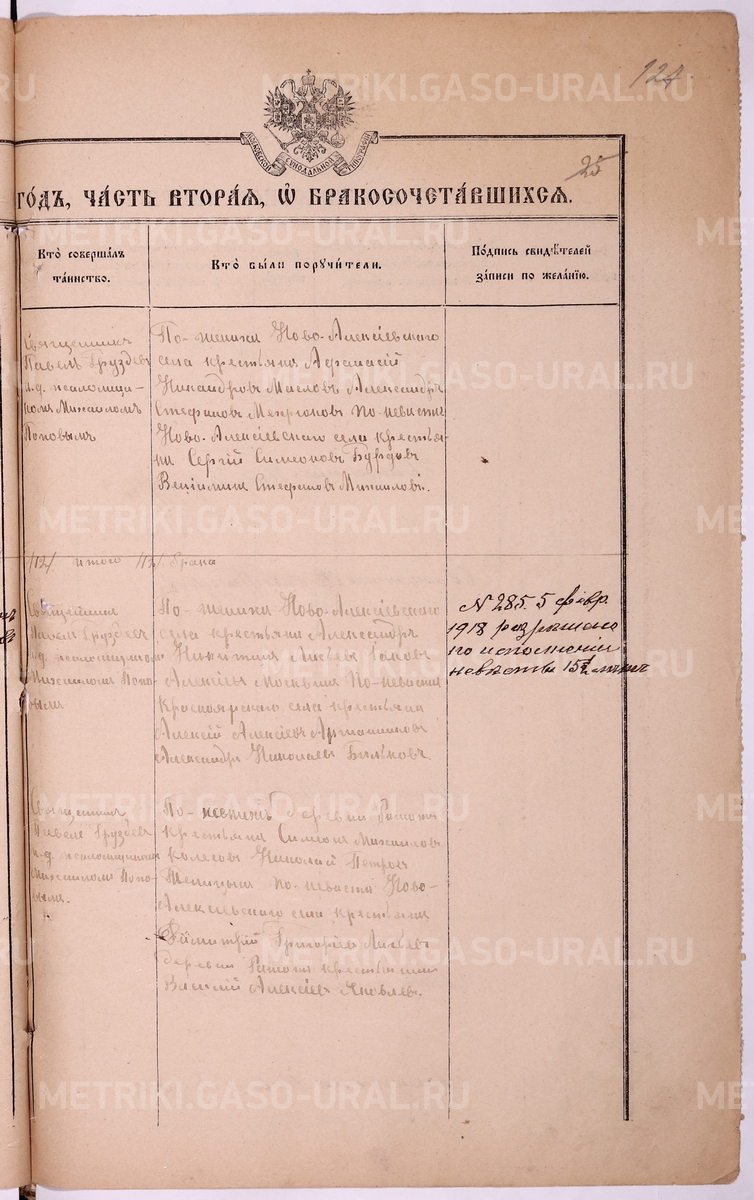 METRIKI.GASO-URAL.RU
124
МОСКОВСКОЙ СѴНОДАЛЬНОЙ ТИПОГРАФІИ
25
ГО́ДЪ, ЧА́СТЬ ВТОРА́Я, Ѡ҆ БРАКОСОЧЕТА́ВШИХСЯ.
Кто̀ соверша́лъ
та́инство.
Кто̀ бы́ли поручи́тели.
По́дпись свидѣ́телей
за́писи по жела́нїю.
Священникъ
Павелъ Груздевъ
и.д. псаломщи-
комъ Михаиломъ
Поповымъ
По женихѣ Ново-Алексіевскаго
села крестьяне Афанасій
Никандровъ Масловъ Александръ
Стефановъ по невѣстѣ
Ново-Алексіевскаго села крестья-
не Сергій Симеоновъ Бурдовъ
Веніаминъ Стефановъ Михаиловъ.
/12/ итого /12/ брака
Священникъ
Павелъ Груздевъ
и.д. псаломщикомъ
Михаиломъ Попо-
вымъ
По женихѣ Ново-Алексіевскаго
села крестьяне Александръ
Никитинъ
Алексіевъ Москвинъ По невѣстѣ
Красноярскаго села крестьяне
Алексій Алексіевъ
Александръ Николаевъ
N 285. 5 февр.
1918 разрѣшено
по исполненіи
невѣстѣ 15½ лѣтъ
Священникъ
Павелъ Груздевъ
и.д. псаломщикомъ
Михаиломъ Попо-
вымъ.
По деревни
крестьяне Симеонъ Михаиловъ
Колеговъ Николай Петровъ
по невѣстѣ Ново-
Алексіевскаго села крестьяне
Димитрій Григоріевъ
деревни крестьянинъ
Василій Алексіевъ Яковлевъ.